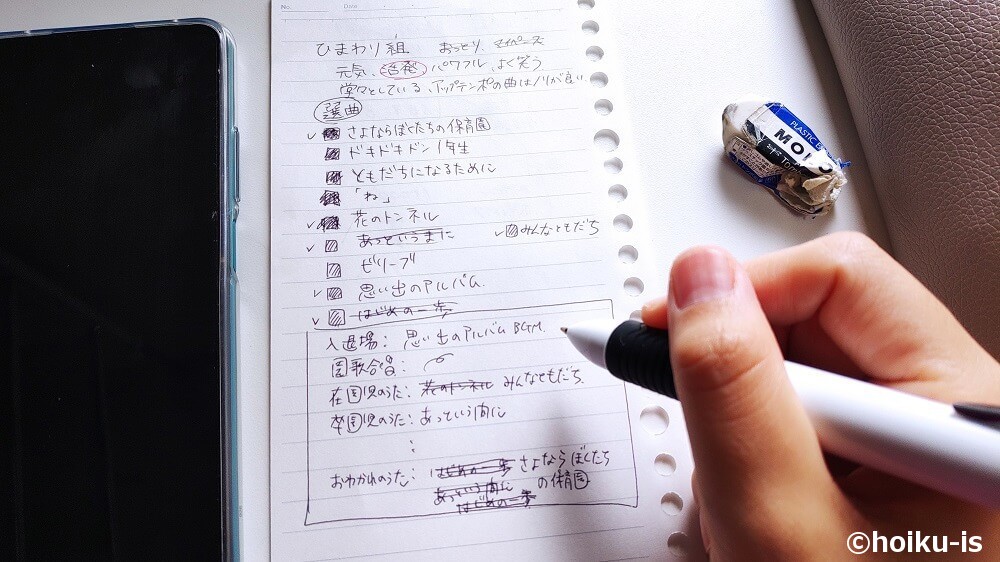 No.
Date
ひまわり組 おっとり、マイペース
元気、活発、パワフル、よく笑う
堂々としている、アップテンポの曲はノリが良い。
選曲
✓ さよならぼくたちの保育園
ドキドキドン1年生
ともだちになるために
「ね」
✓ 花のトンネル
✓ あっというまに ✓みんなともだち
ビリーブ
✓ 思い出のアルバム
✓ はじめの一歩
入退場:思い出のアルバム BGM.
園歌合唱:
在園児のうた:花のトンネル みんなともだち
卒園児のうた:あっという間に
:
おわかれのうた:はじめの一歩 さよならぼくたち
あっという間に の保育園
はじめの一歩
PLASTIC
MONO
©hoiku-is